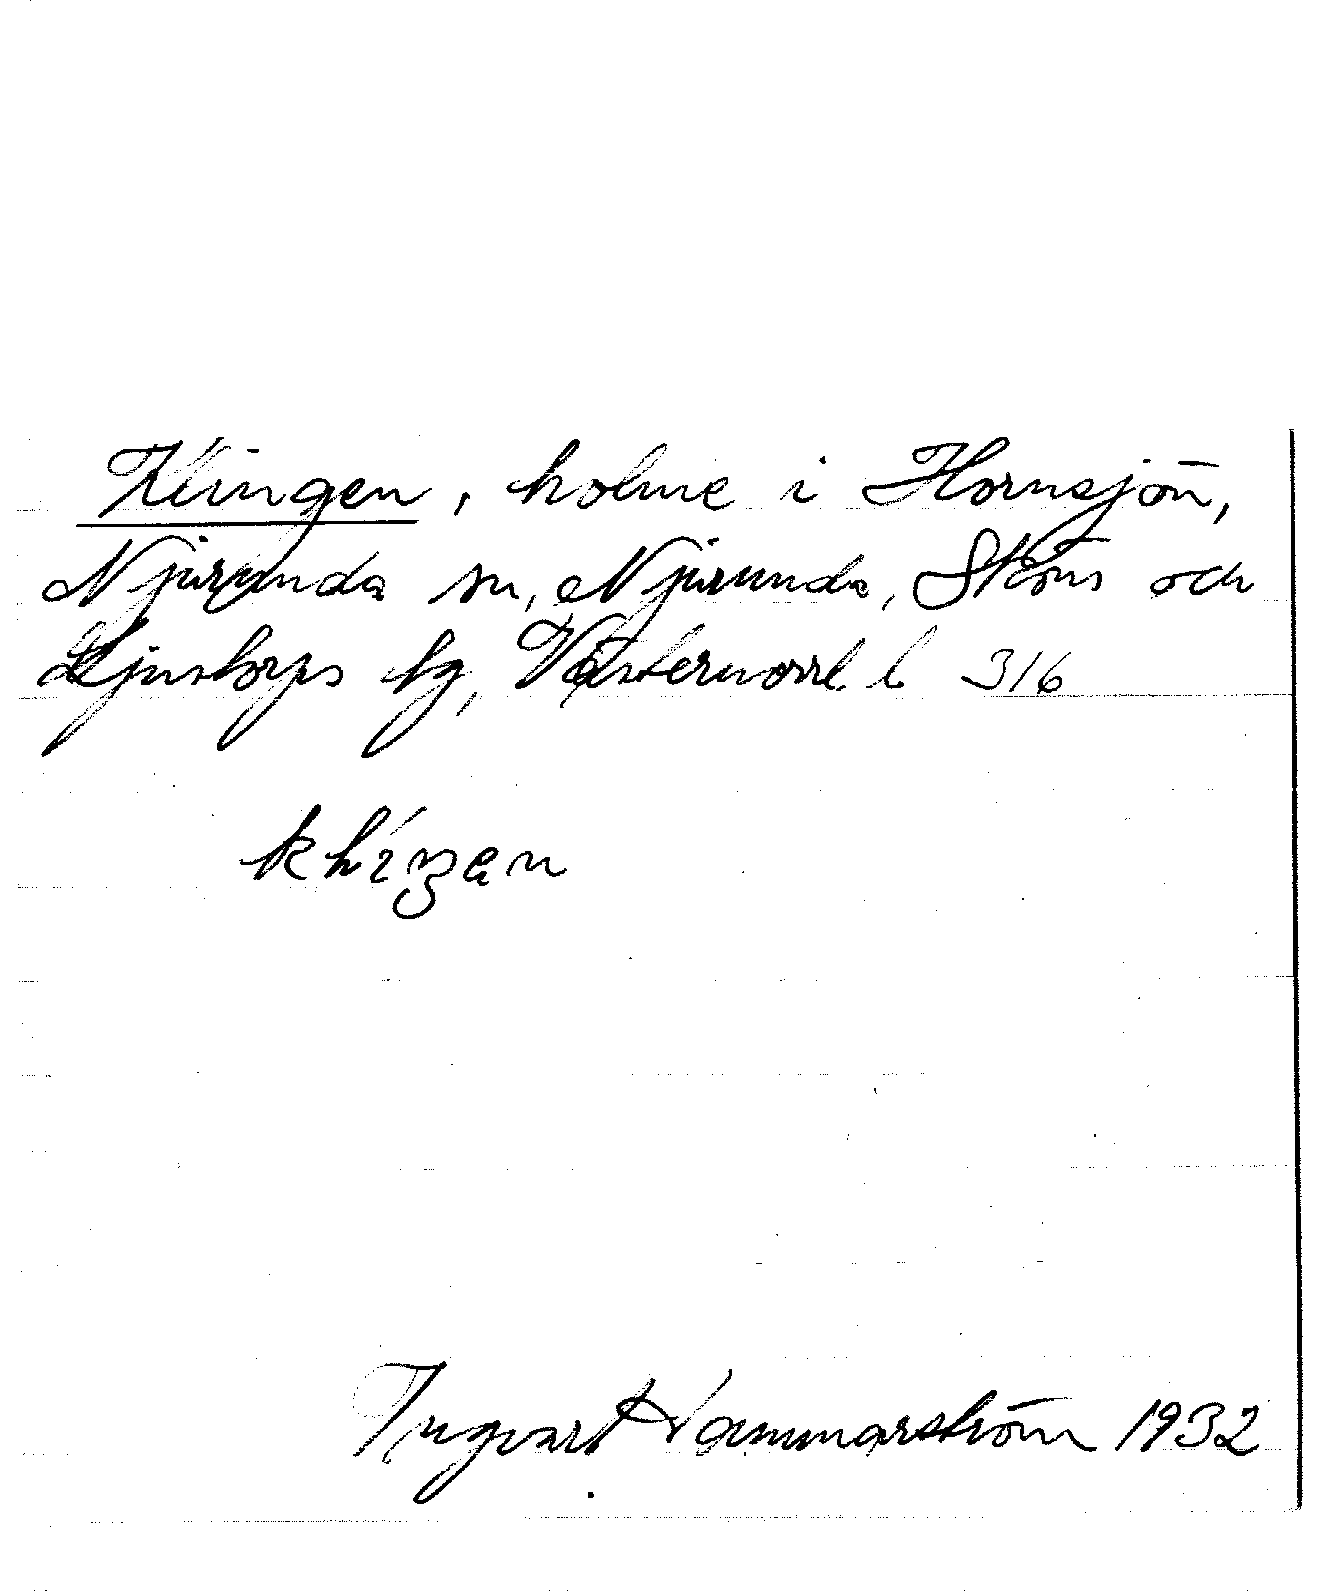 Klingen, holme i Hornsjön,
Njurunda sn, Njurunda, Sköns och
Ljustorps tg, Västernorrl. l 316
Ingvart Hammarström 1932